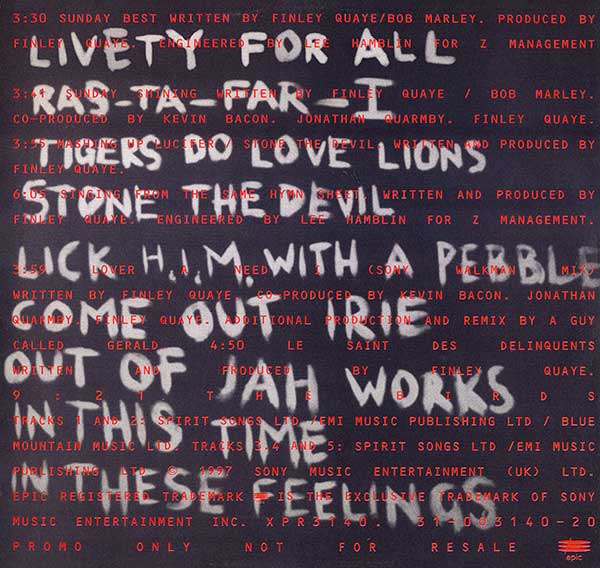 3:30 SUNDAY BEST WRITTEN BY FINLEY QUAYE/BOB MARLEY. PRODUCED BY
FINLEY QUAYE. ENGINEERED BY LEE HAMBLIN FOR Z MANAGEMENT
3:41 SUNDAY SHINING WRITTEN BY FINLEY QUAYE / BOB MARLEY.
CO-PRODUCED BY KEVIN BACON. JONATHAN QUARMBY. FINLEY QUAYE.
3:55 MASHING UP LUCIFER / STONE THE DEVIL. WRITTEN AND PRODUCED BY
FINLEY QUAYE.
6:05 SINGING FROM THE SAME HYMN SHEET. WRITTEN AND PRODUCED BY
FINLEY QUAYE. ENGINEERED BY LEE HAMBLIN FOR Z MANAGEMENT.
3:59 LOVER A NEED I (SONY WALKMAN MIX)
WRITTEN BY FINLEY QUAYE. CO-PRODUCED BY KEVIN BACON. JONATHAN
QUARMBY. FINLEY QUAYE. ADDITIONAL PRODUCTION AND REMIX BY A GUY
CALLED GERALD 4:50 LE SAINT DES DELINQUENTS
WRITTEN AND PRODUCED BY FINLEY QUAYE.
9:21 THE BIRDS
TRACKS 1 AND 2: SPIRIT SONGS LTD /EMI MUSIC PUBLISHING LTD / BLUE
MOUNTAIN MUSIC LTD. TRACKS 3.4 AND 5: SPIRIT SONGS LTD /EMI MUSIC
PUBLISHING LTD © 1997 SONY MUSIC ENTERTAINMENT (UK) LTD.
EPIC REGISTERED TRADEMARK IS THE EXCLUSIVE TRADEMARK OF SONY
MUSIC ENTERTAINMENT INC. XPR3140. 31-003140-20
PROMO ONLY NOT FOR RESALE
epic
LIVETY FOR ALL
RAS-TA-FAR-I
TIGERS DO LOVE LIONS
STONE THE DEVIL
LICK H.I.M. WITH A PEBBLE
COME OUT IRIE
OUT OF JAH WORKS
IN THIS TIME
IN THESE FEELINGS